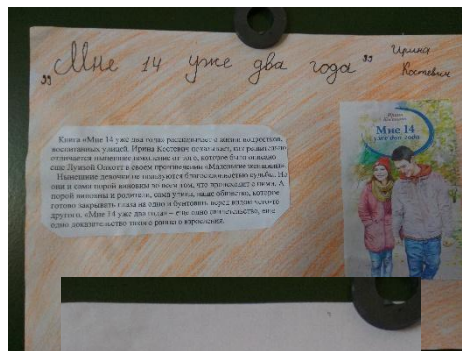 „Мне 14 уже два года”
Ирина
Костевич
Ирина
Мне 14
уже два года
Книга «Мне 14 уже два года» рассказывает о жизни подростков,
воспитанных улицей. Ирина Костевич
отличается нынешнее поколение от того, которое было описано
еще Луизой Олкотт в своем произведении «Маленькие женщины».
Нынешние девочки не пользуются благосклонностью судьбы. Но
они и сами порой виновны во всем, что происходит с ними. А
порой виновны и родители, сама улица, наше общество, которое
готово закрывать глаза на одно и бунтовать перед
другого. «Мне 14 уже два года» – еще одно свидетельство, еще
одно доказательство раннего взросления.